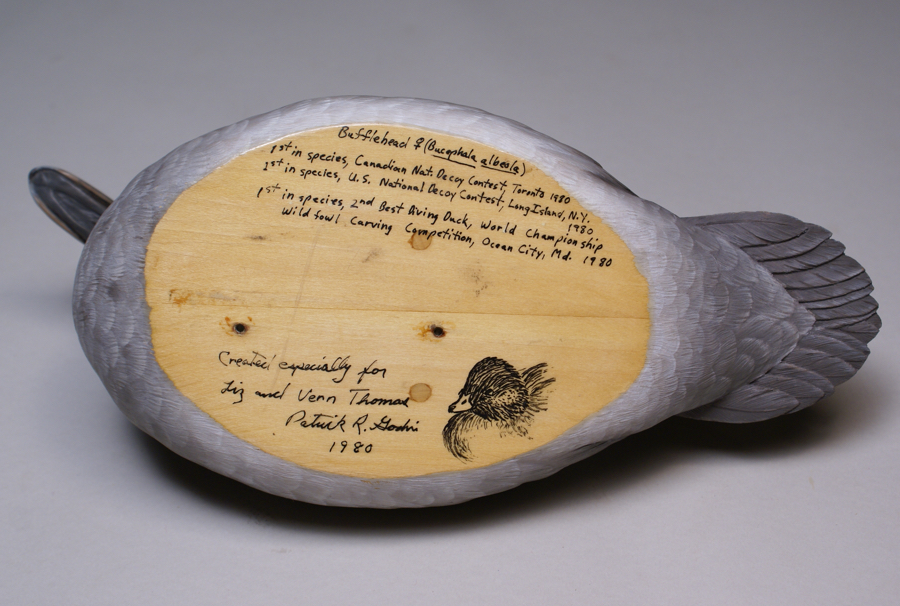 Bufflehead ♀ (Bucephala albeola)
1st in species, Canadian Nat. Decoy Contest, Toronto 1980
1st in species, U.S. National Decoy Contest, Long Island, N.Y. 1980
1st in species, 2nd Best Diving Duck, World Championship
Wildfowl Carving Competition, Ocean City, Md. 1980
Created especially for
Liz and Venn Thomas
Patrick R. Godin
1980